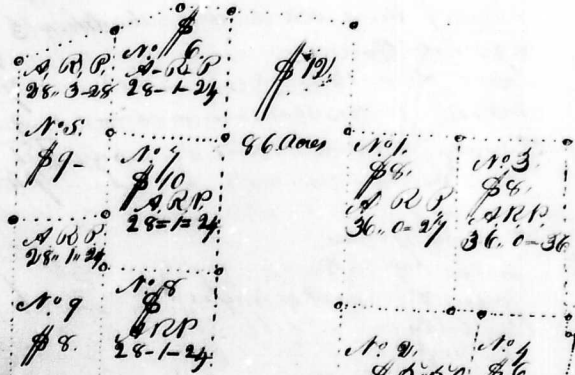 No 6
$
A. R. P.
28..3-28
No 5.
$9-
A-R-P
28-1-24
$12.
86 Acres
No 7
$10
A.R.P.
28=1=24
No 1.
$8.
A R P
36..0=27
No 3.
$8.
A.R.P.
36..0=36
A. R. P.
28..1..24
No 9
$8.
No 8
$
A R P
28-1-24
No 2.
No 4
$6